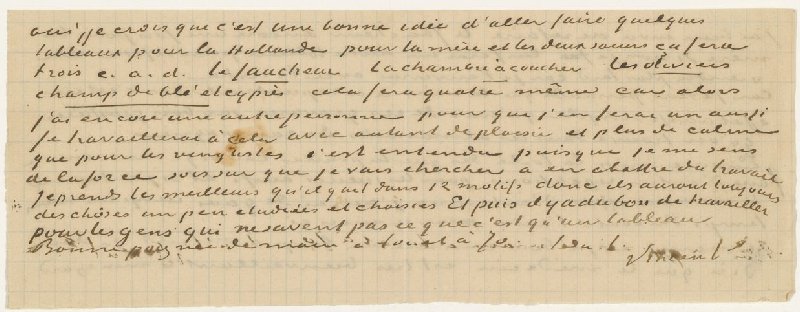 oui je crois que c'est une bonne idée d'aller faire quelques
tableaux pour la Hollande pour la mère et les deux soeurs ça fera
trois c. a. d. le faucheur la chambre à coucher les oliviers
champ de blé et cyprès cela fera quatre même car alors
j'ai encore une autre personne pour que j'en ferai un aussi
Je travaillerai à cela avec autant de plaisir et plus de calme
que pour les vingtistes c'est entendu puisque je me sens
de la force sois sur que je vais chercher a en abattre du travail
Je prends les meilleurs qu'il y ait dans 12 motifs donc ils auront toujours
des choses un peu etudiées et choisies Et puis il y a du bon de travailler
pour les gens qui ne savent pas ce que c'est qu'un tableau
Bonne poignée de main à toi et à Jo Vincent